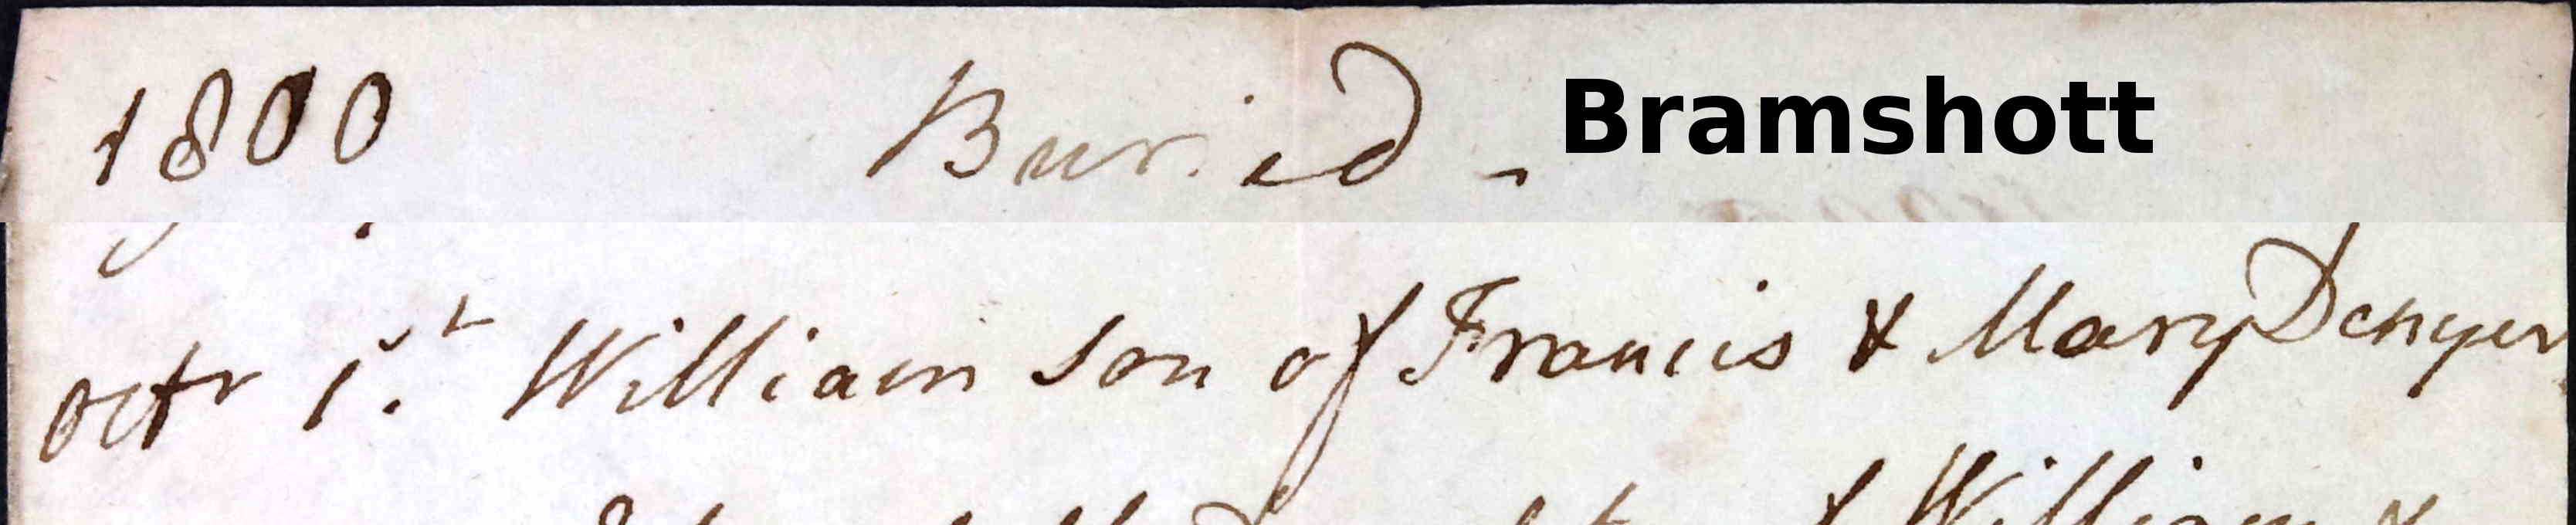 1800 Buried - Bramshott
Octr 1st. William son of Francis & Mary Denyer
William &